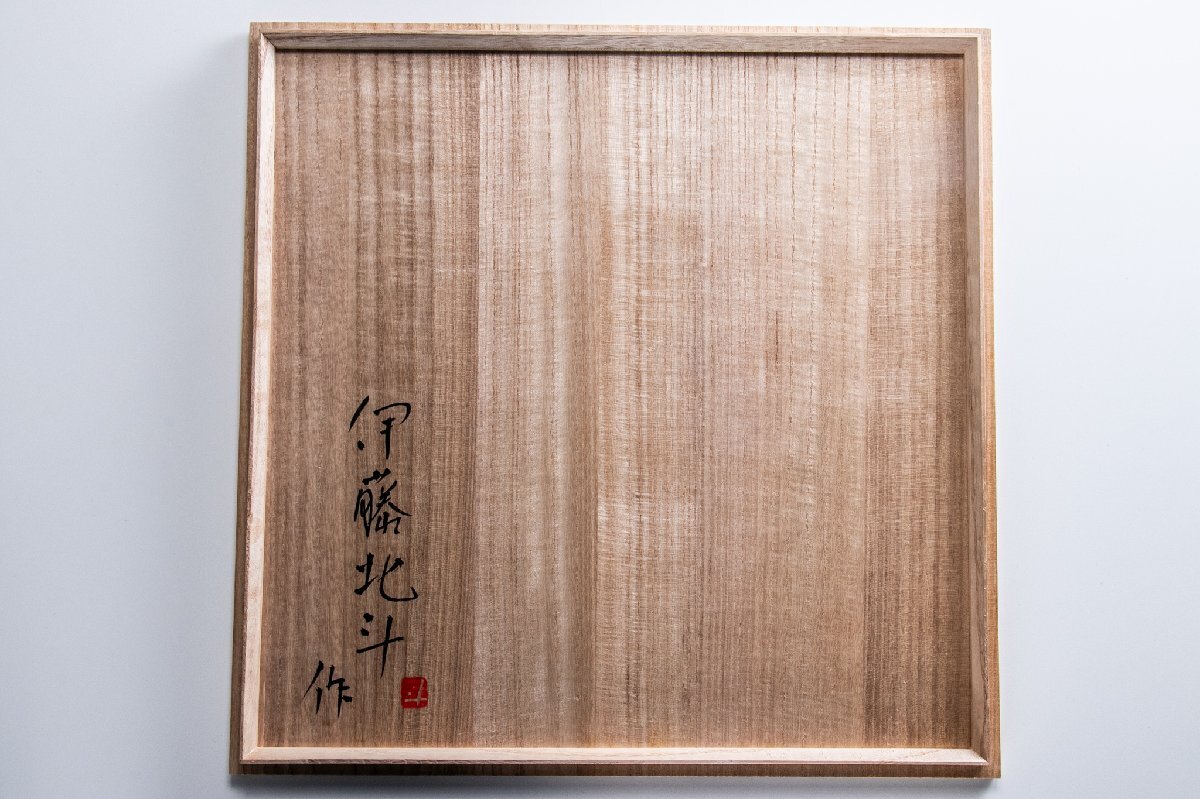 伊藤北斗
作
斗